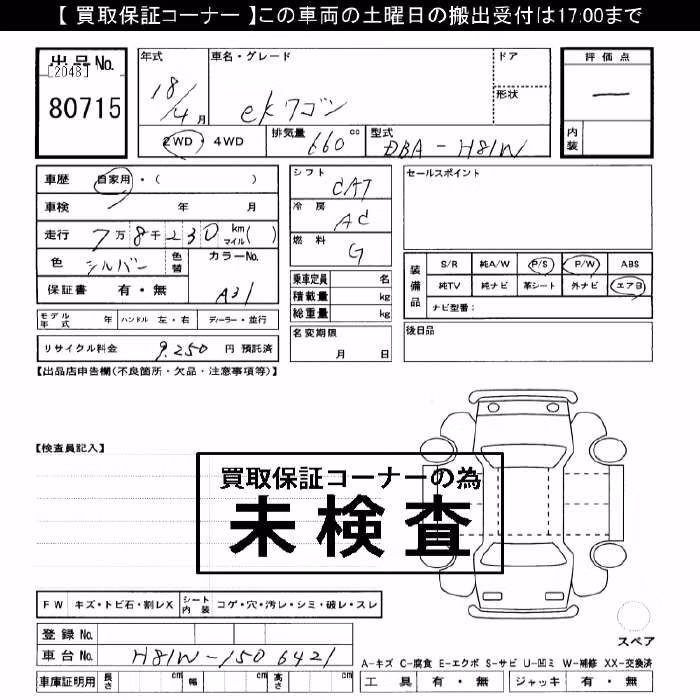 【 買取保証コーナー 】この車両の土曜日の搬出受付は17:00まで
出品No.
[2048]
80715
年式 18/4 月
車名・グレード ekワゴン
ドア
形状
評価点 —
内装
2WD ・ 4WD
排気量 660 cc
型式 DBA-H81W
車歴 自家用 ・ ( )
車検 年 月
走行 7万 8千 230 km マイル ( )
色 シルバー 色替
カラーNo. A31
保証書 有・無
シフト CAT
冷房 AC
燃料 G
乗車定員 名
積載量 kg
総重量 kg
セールスポイント
装備品
S/R 純A/W P/S P/W ABS
純TV 純ナビ 革シート 外ナビ エアB
ナビ型番:
モデル年式 年 ハンドル 左・右 ディーラー・並行
名変期限 月 日
後日品
リサイクル料金 9.250 円 預託済
【出品店申告欄(不良箇所・欠品・注意事項等)】
【検査員記入】
買取保証コーナーの為
未検査
FW キズ・トビ石・割レX シート内装 コゲ・穴・汚レ・シミ・破レ・スレ
登録No.
車台No. H81W-1506421
スペア
A-キズ C-腐食 E-エクボ S-サビ U-凹ミ W-補修 XX-交換済
車庫証明用 長さ cm 幅 cm 高さ cm
工具 有・無 ジャッキ 有・無